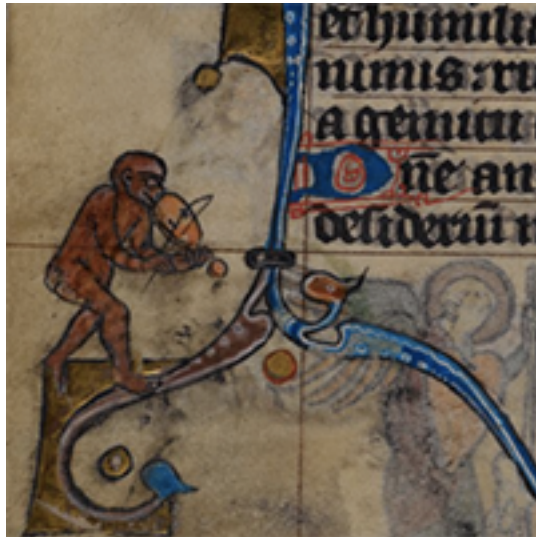 et humilia
nimis: ru
a gemitu
Dñe an
desideriũ m